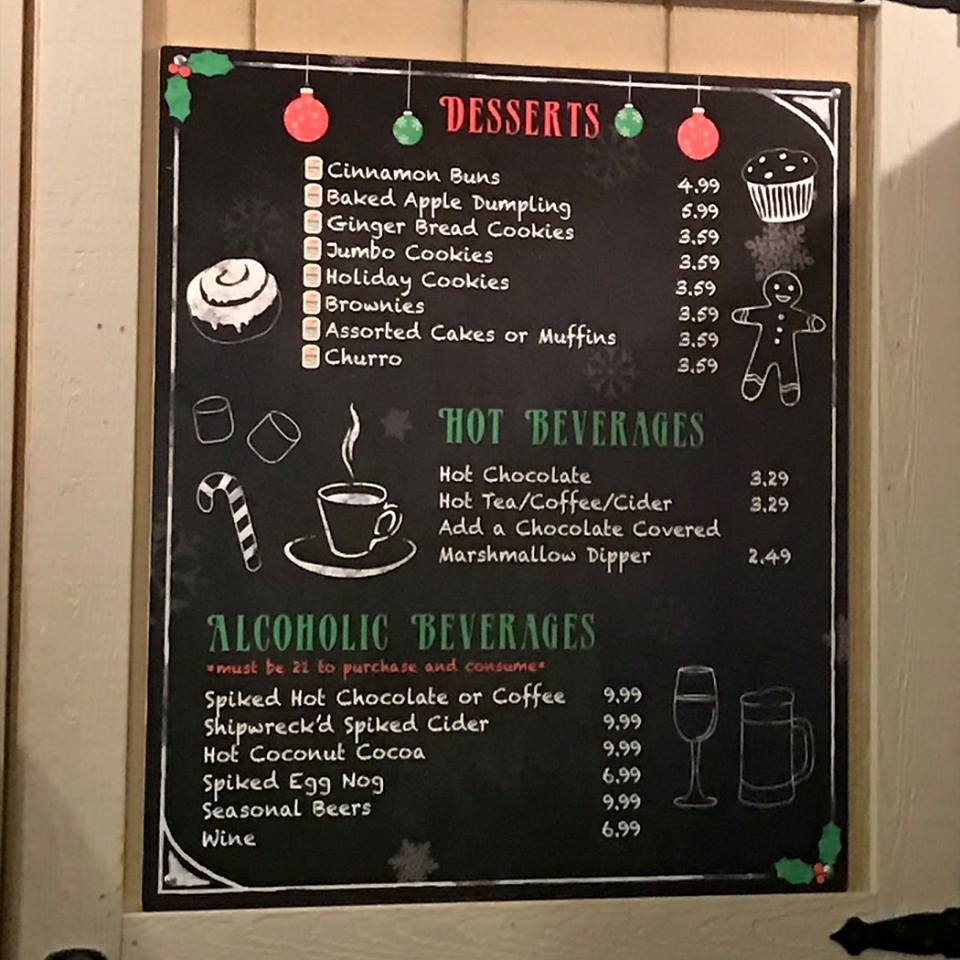 DESSERTS
Cinnamon Buns 4.99
Baked Apple Dumpling 5.99
Ginger Bread Cookies 3.59
Jumbo Cookies 3.59
Holiday Cookies 3.59
Brownies 3.59
Assorted Cakes or Muffins 3.59
Churro 3.59
HOT BEVERAGES
Hot Chocolate 3.29
Hot Tea/Coffee/Cider 3.29
Add a Chocolate Covered
Marshmallow Dipper 2.49
ALCOHOLIC BEVERAGES
*must be 21 to purchase and consume*
Spiked Hot Chocolate or Coffee 9.99
Shipwreck'd Spiked Cider 9.99
Hot Coconut Cocoa 9.99
Spiked Egg Nog 6.99
Seasonal Beers 9.99
Wine 6.99